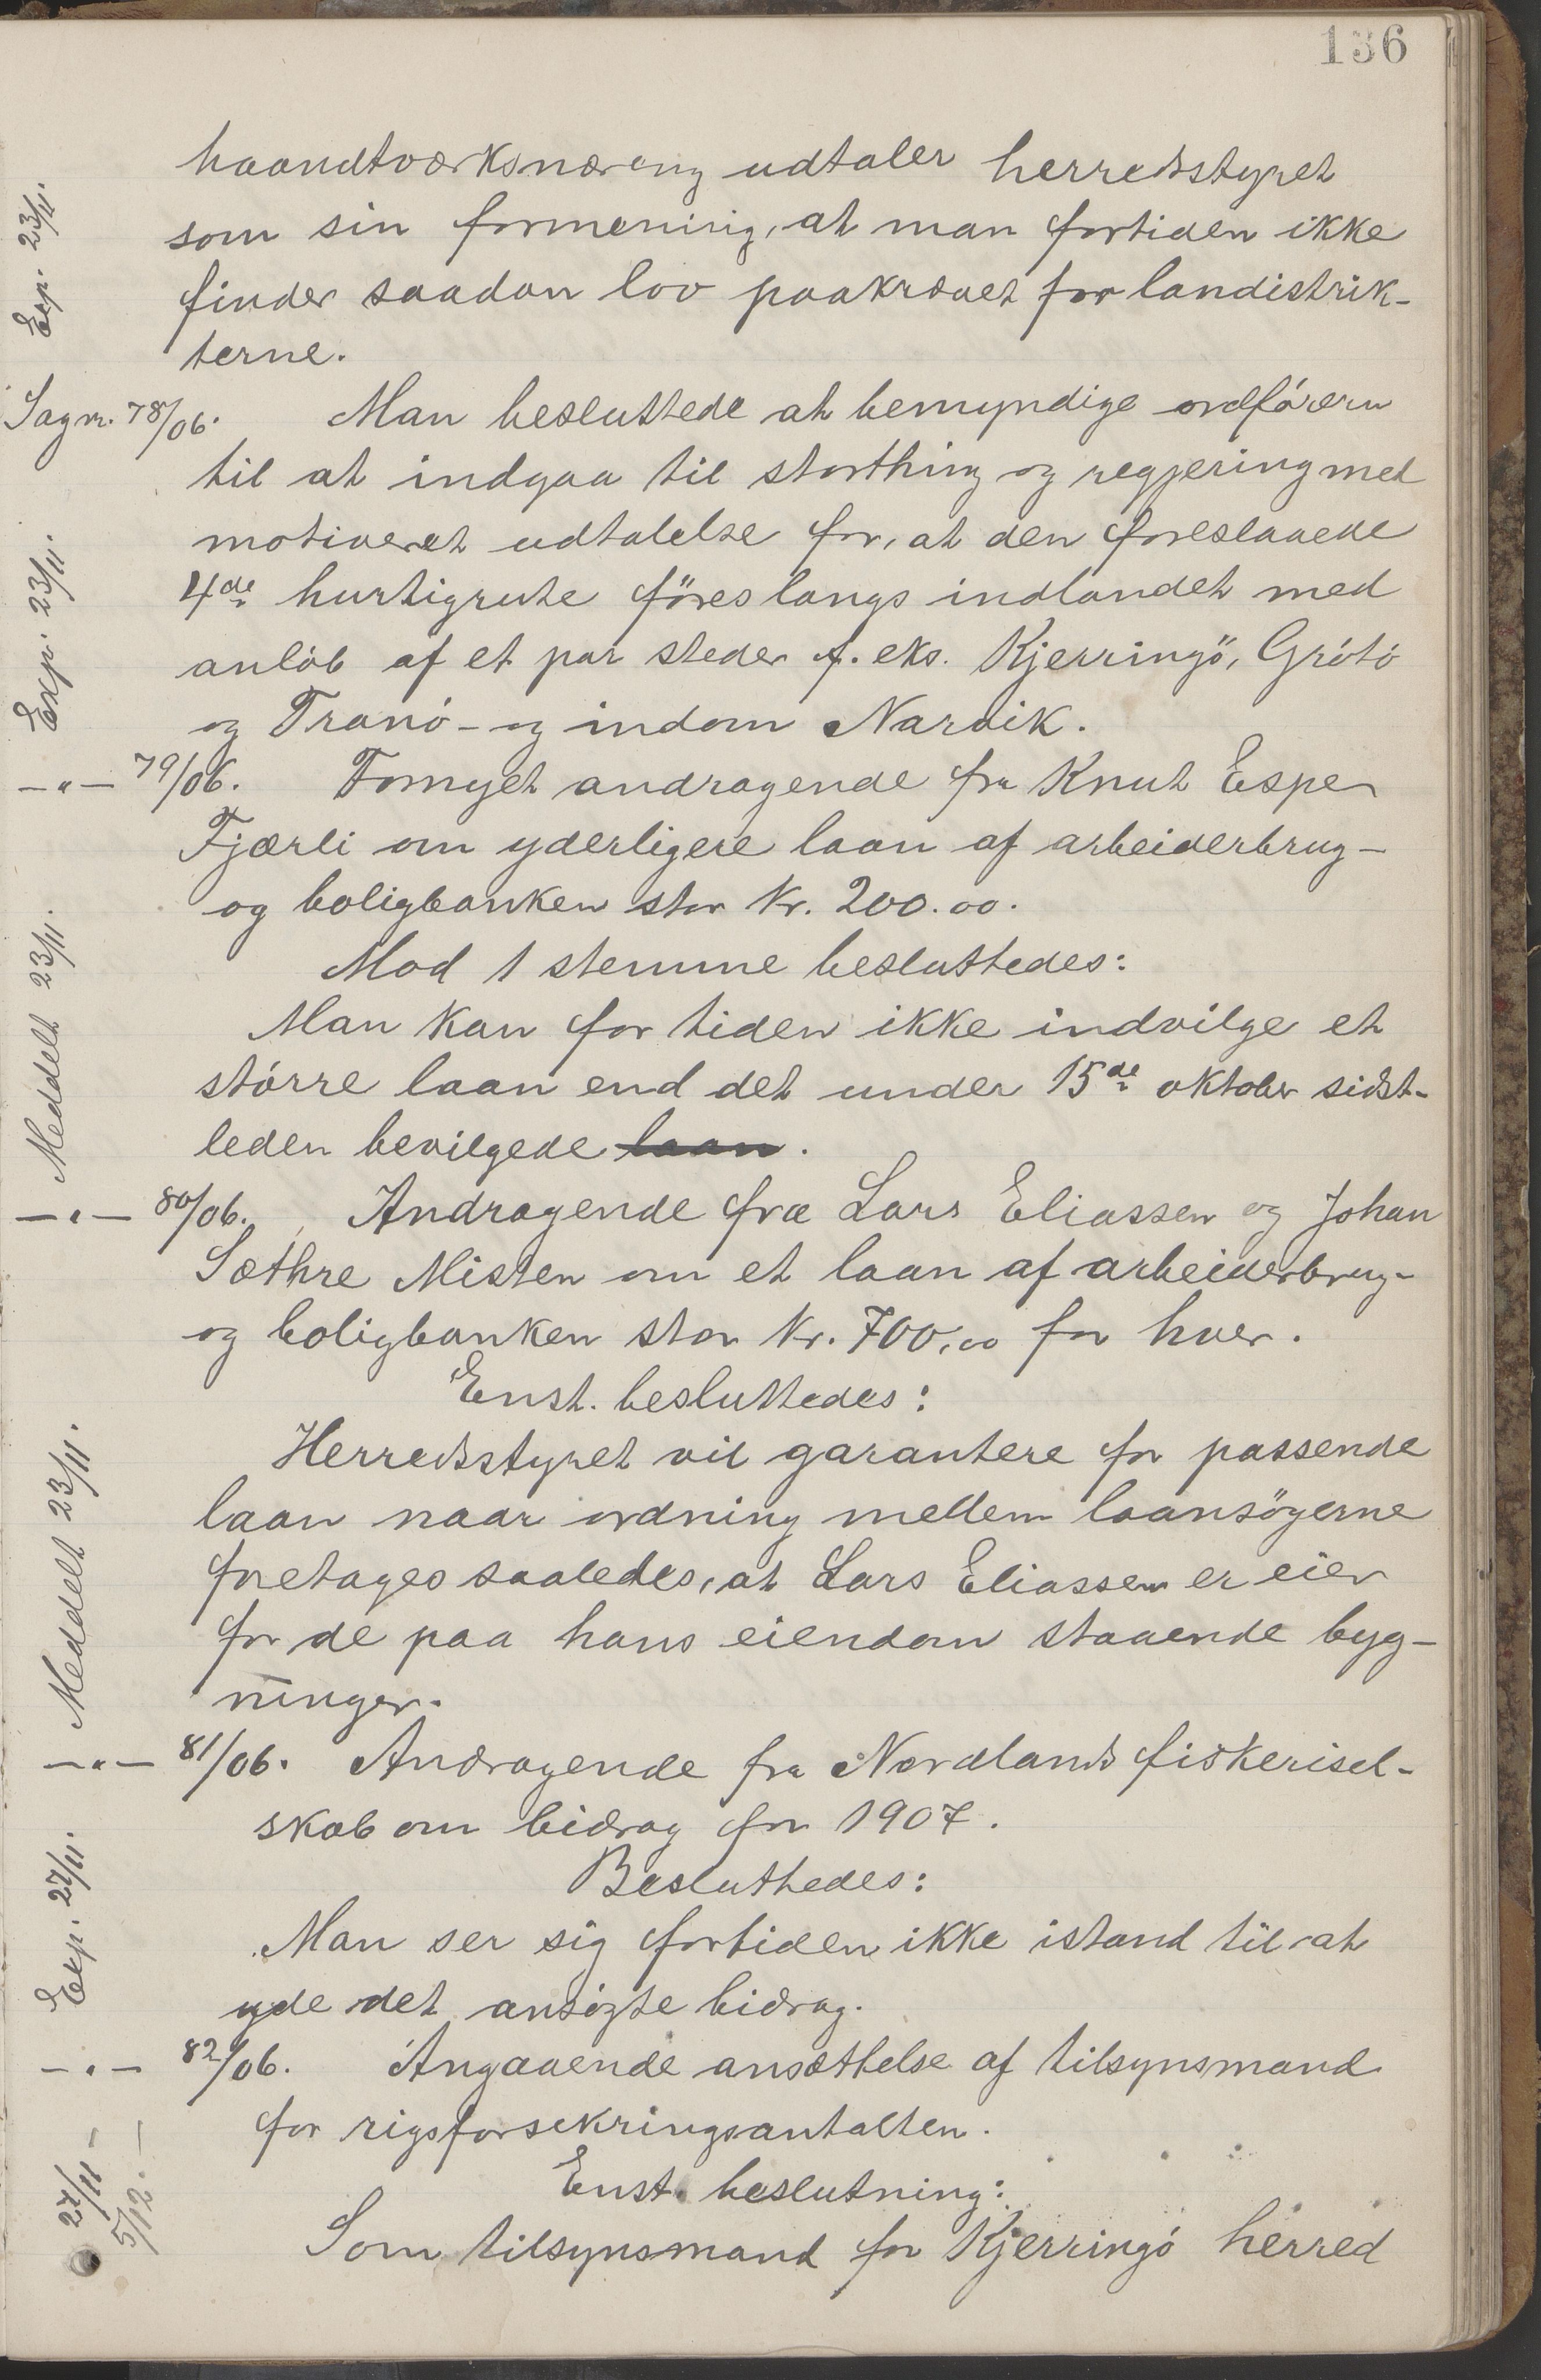 136
haandtværksnæring udtaler herredsstyret
som sin formening, at man fortiden ikke
finder saadan lov paakrævet for landistrik-
terne.
Exp. 23/11.
Sag nr. 78/06. Man besluttede at bemyndige ordföreren
til at indgaa til storthing og regjering med
motiveret udtalelse for, at den foreslaaede
4de hurtigrute föres langs indlandet med
anlöb af et par steder f. eks. Kjerringö, Grötö
og Tranö - og indom Narvik.
Exp. 23/11.
-"- 79/06. Fornyet andragende fra Knut Espen
Fjærli om yderligere laan af arbeiderbrug-
og boligbanken stor Kr. 200.00.
Mod 1 stemme besluttedes:
Man kan for tiden ikke indvilge et
större laan end det under 15de oktober sidst-
leden bevilgede laan.
Meddelt 23/11.
-"- 80/06. Andragende fra Lars Eliassen og Johan
Sæthre Misten om et laan af arbeiderbrug-
og boligbanken stor Kr. 700,00 for hver.
Enst. besluttedes:
Herredsstyret vil garantere for passende
laan naar ordning mellem laansögerne
foretages saaledes, at Lars Eliassen er eier
for de paa hans eiendom staaende byg-
ninger.
Meddelt 23/11.
-"- 81/06. Andragende fra Nordlands fiskerisel-
skab om bidrag for 1907.
Besluttedes:
Man ser sig fortiden ikke istand til at
yde det ansögte bidrag.
Exp. 27/11.
-"- 82/06. Angaaende ansættelse af tilsynsmand
for rigsforsekringsantalten.
Enst. beslutning:
Som tilsynsmand for Kjerringö herred
27/11 -
5/12. -